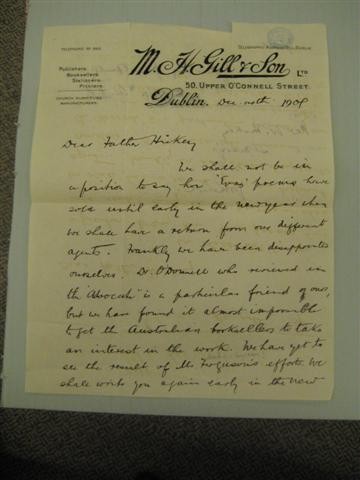 TELEPHONE Nº
M. H. Gill & Son LTD
Publishers,
Booksellers,
Stationers,
Printers.
CHURCH FURNITURE
MANUFACTURERS.
50, UPPER O'CONNELL STREET.
Dublin, Dec 1908
Dear Father Hickey
We shall not be in
a position to say how "Eva's" poems have
sold until early in the new year when
we shall have a return from our different
agents. Frankly we have been disappointed
ourselves. Dr. O'Donnell who reviewed in
the "Advocate" is a particular friend of ours,
but we have found it almost impossible
to get the Australian booksellers to take
an interest in the work. We have yet to
see the result of Mr Ferguson's efforts. We
shall write you again early in the new